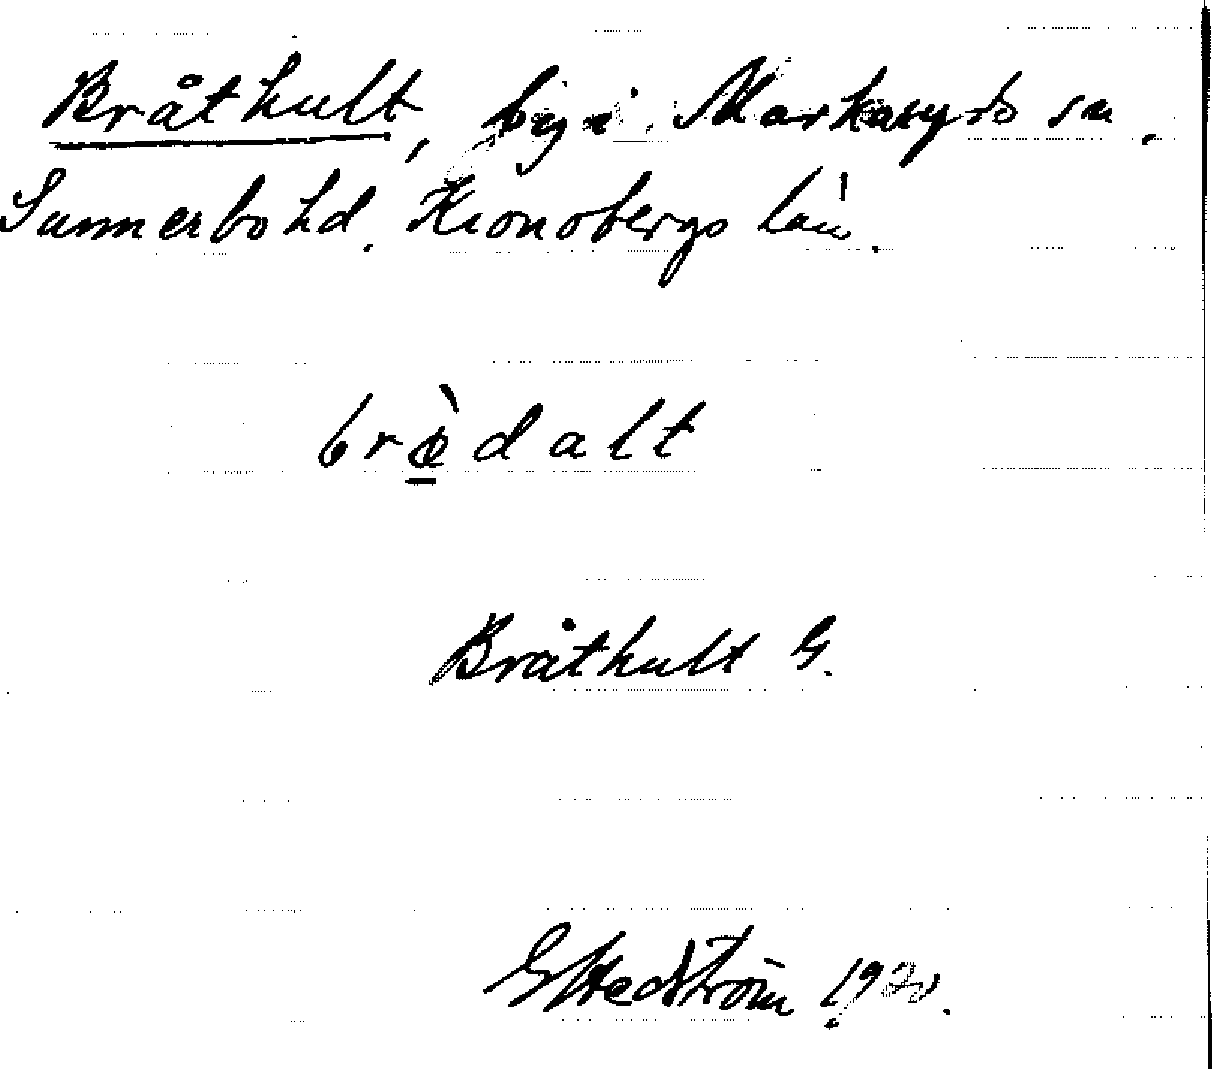 Bråthult, by i Markaryds sn.
Sunnerbo hd. Kronobergs län.
bræ̀dalt
Bråthult G.
G Hedström 1920.